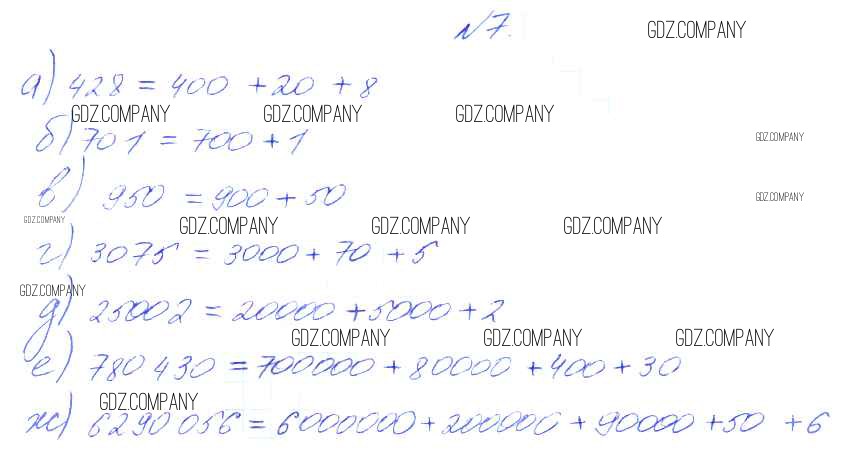 №7. GDZ.COMPANY
а) 428 = 400 + 20 + 8
GDZ.COMPANY GDZ.COMPANY GDZ.COMPANY
б) 701 = 700 + 1 GDZ.COMPANY
в) 950 = 900 + 50 GDZ.COMPANY
GDZ.COMPANY GDZ.COMPANY GDZ.COMPANY GDZ.COMPANY
г) 3075 = 3000 + 70 + 5
GDZ.COMPANY
д) 25002 = 20000 + 5000 + 2
GDZ.COMPANY GDZ.COMPANY GDZ.COMPANY
е) 780 430 = 700000 + 80000 + 400 + 30
GDZ.COMPANY
ж) 6290 056 = 6000000 + 200000 + 90000 + 50 + 6